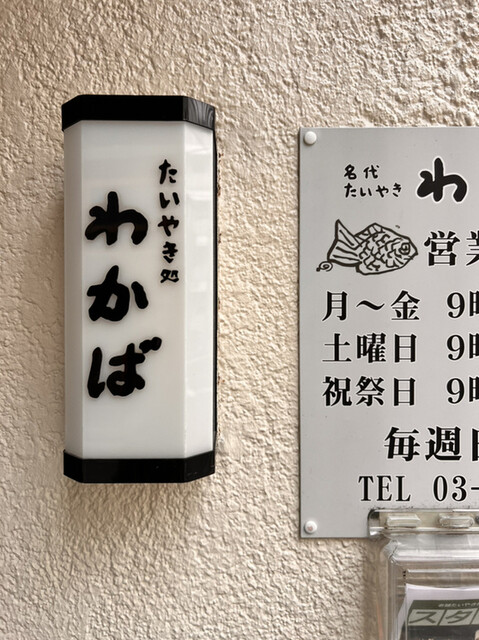 たいやき処
わかば
名代
たいやき
わ
営業
月～金 9時
土曜日 9時
祝祭日 9時
毎週日
TEL 03-
スタ